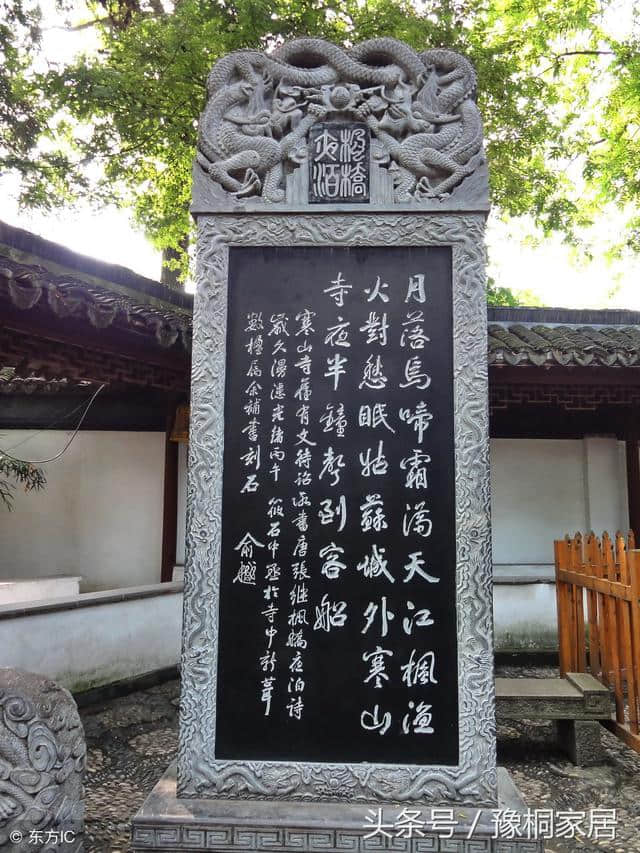 楓橋
夜泊
月落烏啼霜滿天江楓漁
火對愁眠姑蘇城外寒山
寺夜半鐘聲到客船
寒山寺舊有文待詔所書唐張繼楓橋夜泊詩
歲久漫漶光緒丙午筱石中丞於寺中新葺
數楹屬余補書刻石
俞樾
© 东方IC
头条号 / 豫桐家居